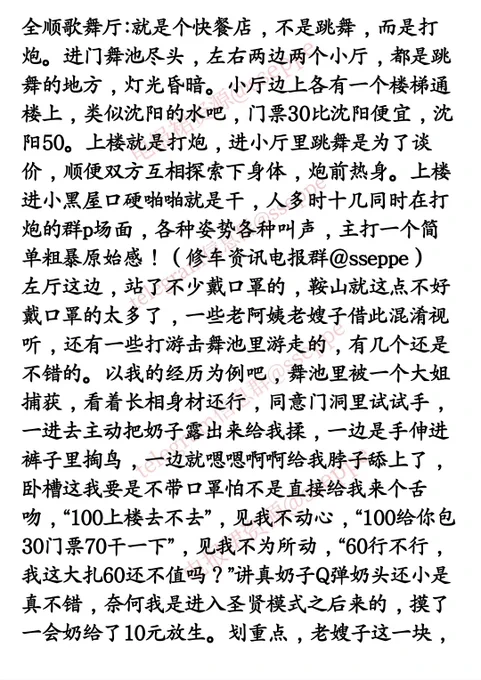 全顺歌舞厅:就是个快餐店，不是跳舞，而是打
炮。进门舞池尽头，左右两边两个小厅，都是跳
舞的地方，灯光昏暗。小厅边上各有一个楼梯通
楼上，类似沈阳的水吧，门票30比沈阳便宜，沈
阳50。上楼就是打炮，进小厅里跳舞是为了谈
价，顺便双方互相探索下身体，炮前热身。上楼
进小黑屋口硬啪啪就是干，人多时十几同时在打
炮的群p场面，各种姿势各种叫声，主打一个简
单粗暴原始感！（修车资讯电报群@sseppe）
左厅这边，站了不少戴口罩的，鞍山就这点不好
戴口罩的太多了，一些老阿姨老嫂子借此混淆视
听，还有一些打游击舞池里游走的，有几个还是
不错的。以我的经历为例吧，舞池里被一个大姐
捕获，看着长相身材还行，同意门洞里试试手，
一进去主动把奶子露出来给我揉，一边是手伸进
裤子里掏鸟，一边就嗯嗯啊啊给我脖子舔上了，
卧槽这我要是不带口罩怕不是直接给我来个舌
吻，“100上楼去不去”，见我不动心，“100给你包
30门票70干一下”，见我不为所动，“60行不行，
我这大扎60还不值吗？”讲真奶子Q弹奶头还小是
真不错，奈何我是进入圣贤模式之后来的，摸了
一会奶给了10元放生。划重点，老嫂子这一块，